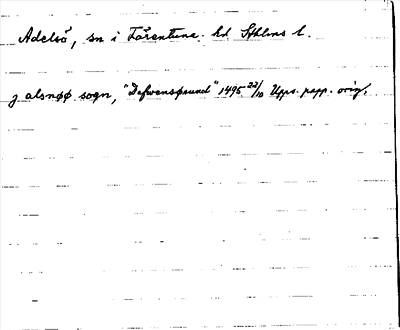 Adelsö, sn i Färentuna hd Sthlms l.
j alsnøø sogn, "Defwensøsund" 1495 22/10 Upps. papp. orig.